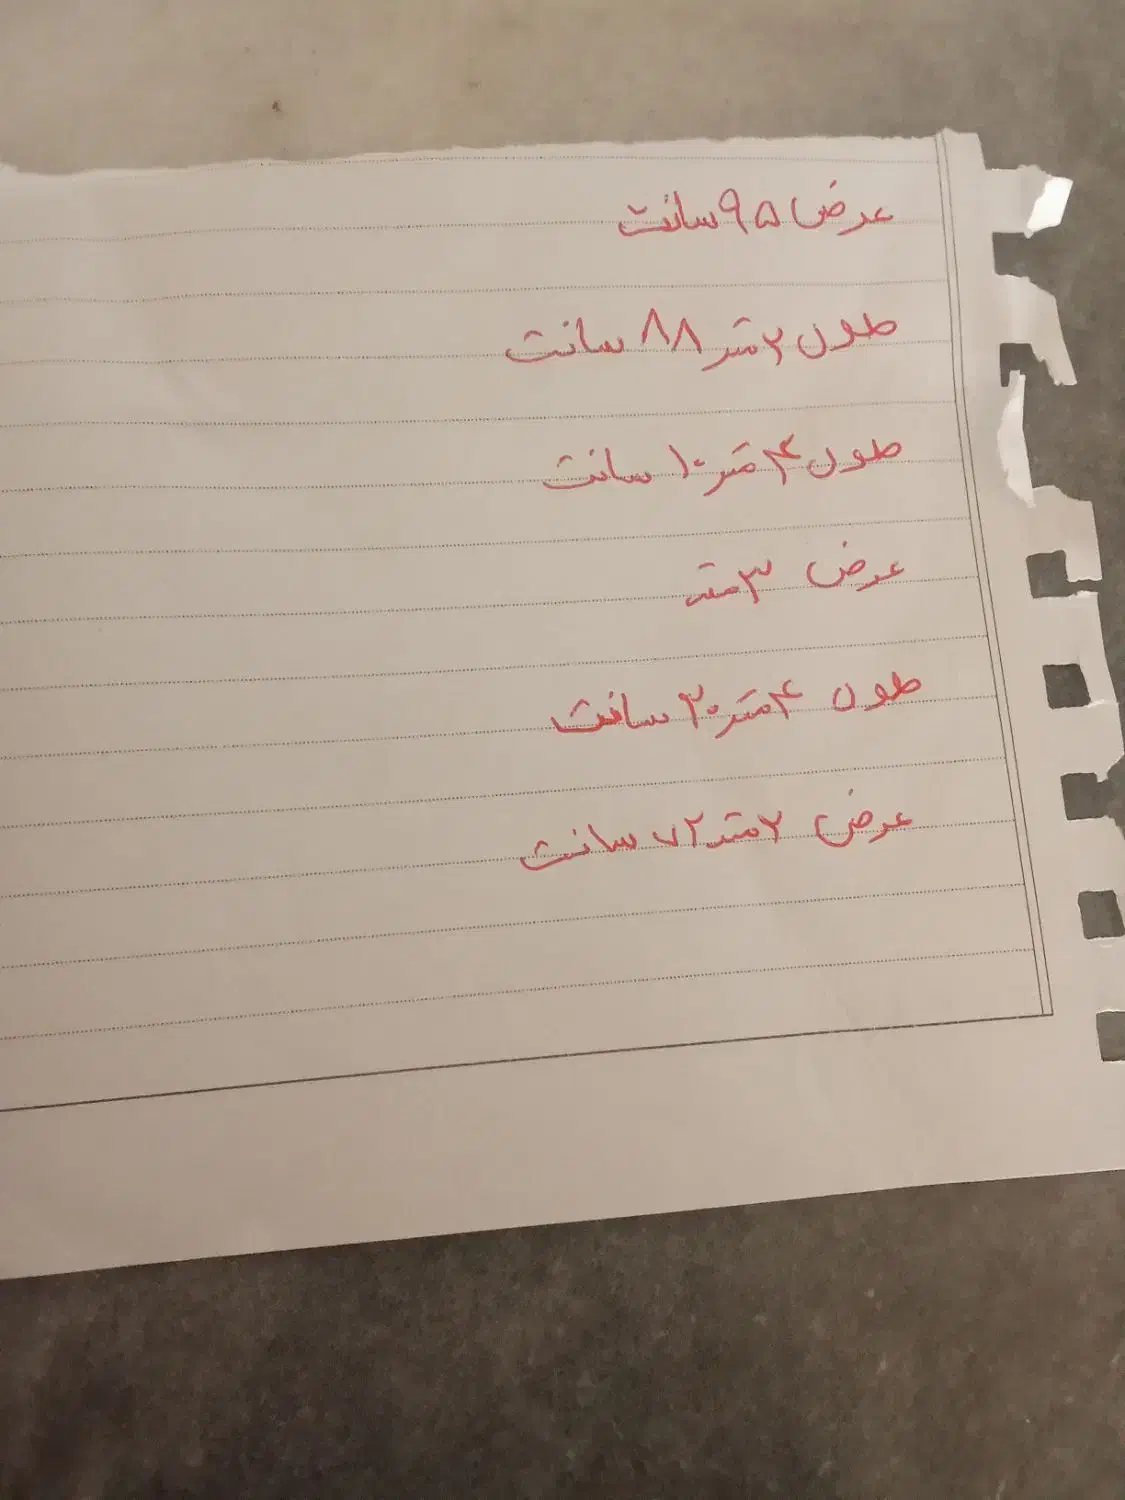 عرض ۹۵ سانت
طول ۲ متر ۸۸ سانت
طول ۴ متر ۱۰ سانت
عرض ۳ متر
طول ۴ متر ۲۰ سانت
عرض ۲ متر ۷۲ سانت